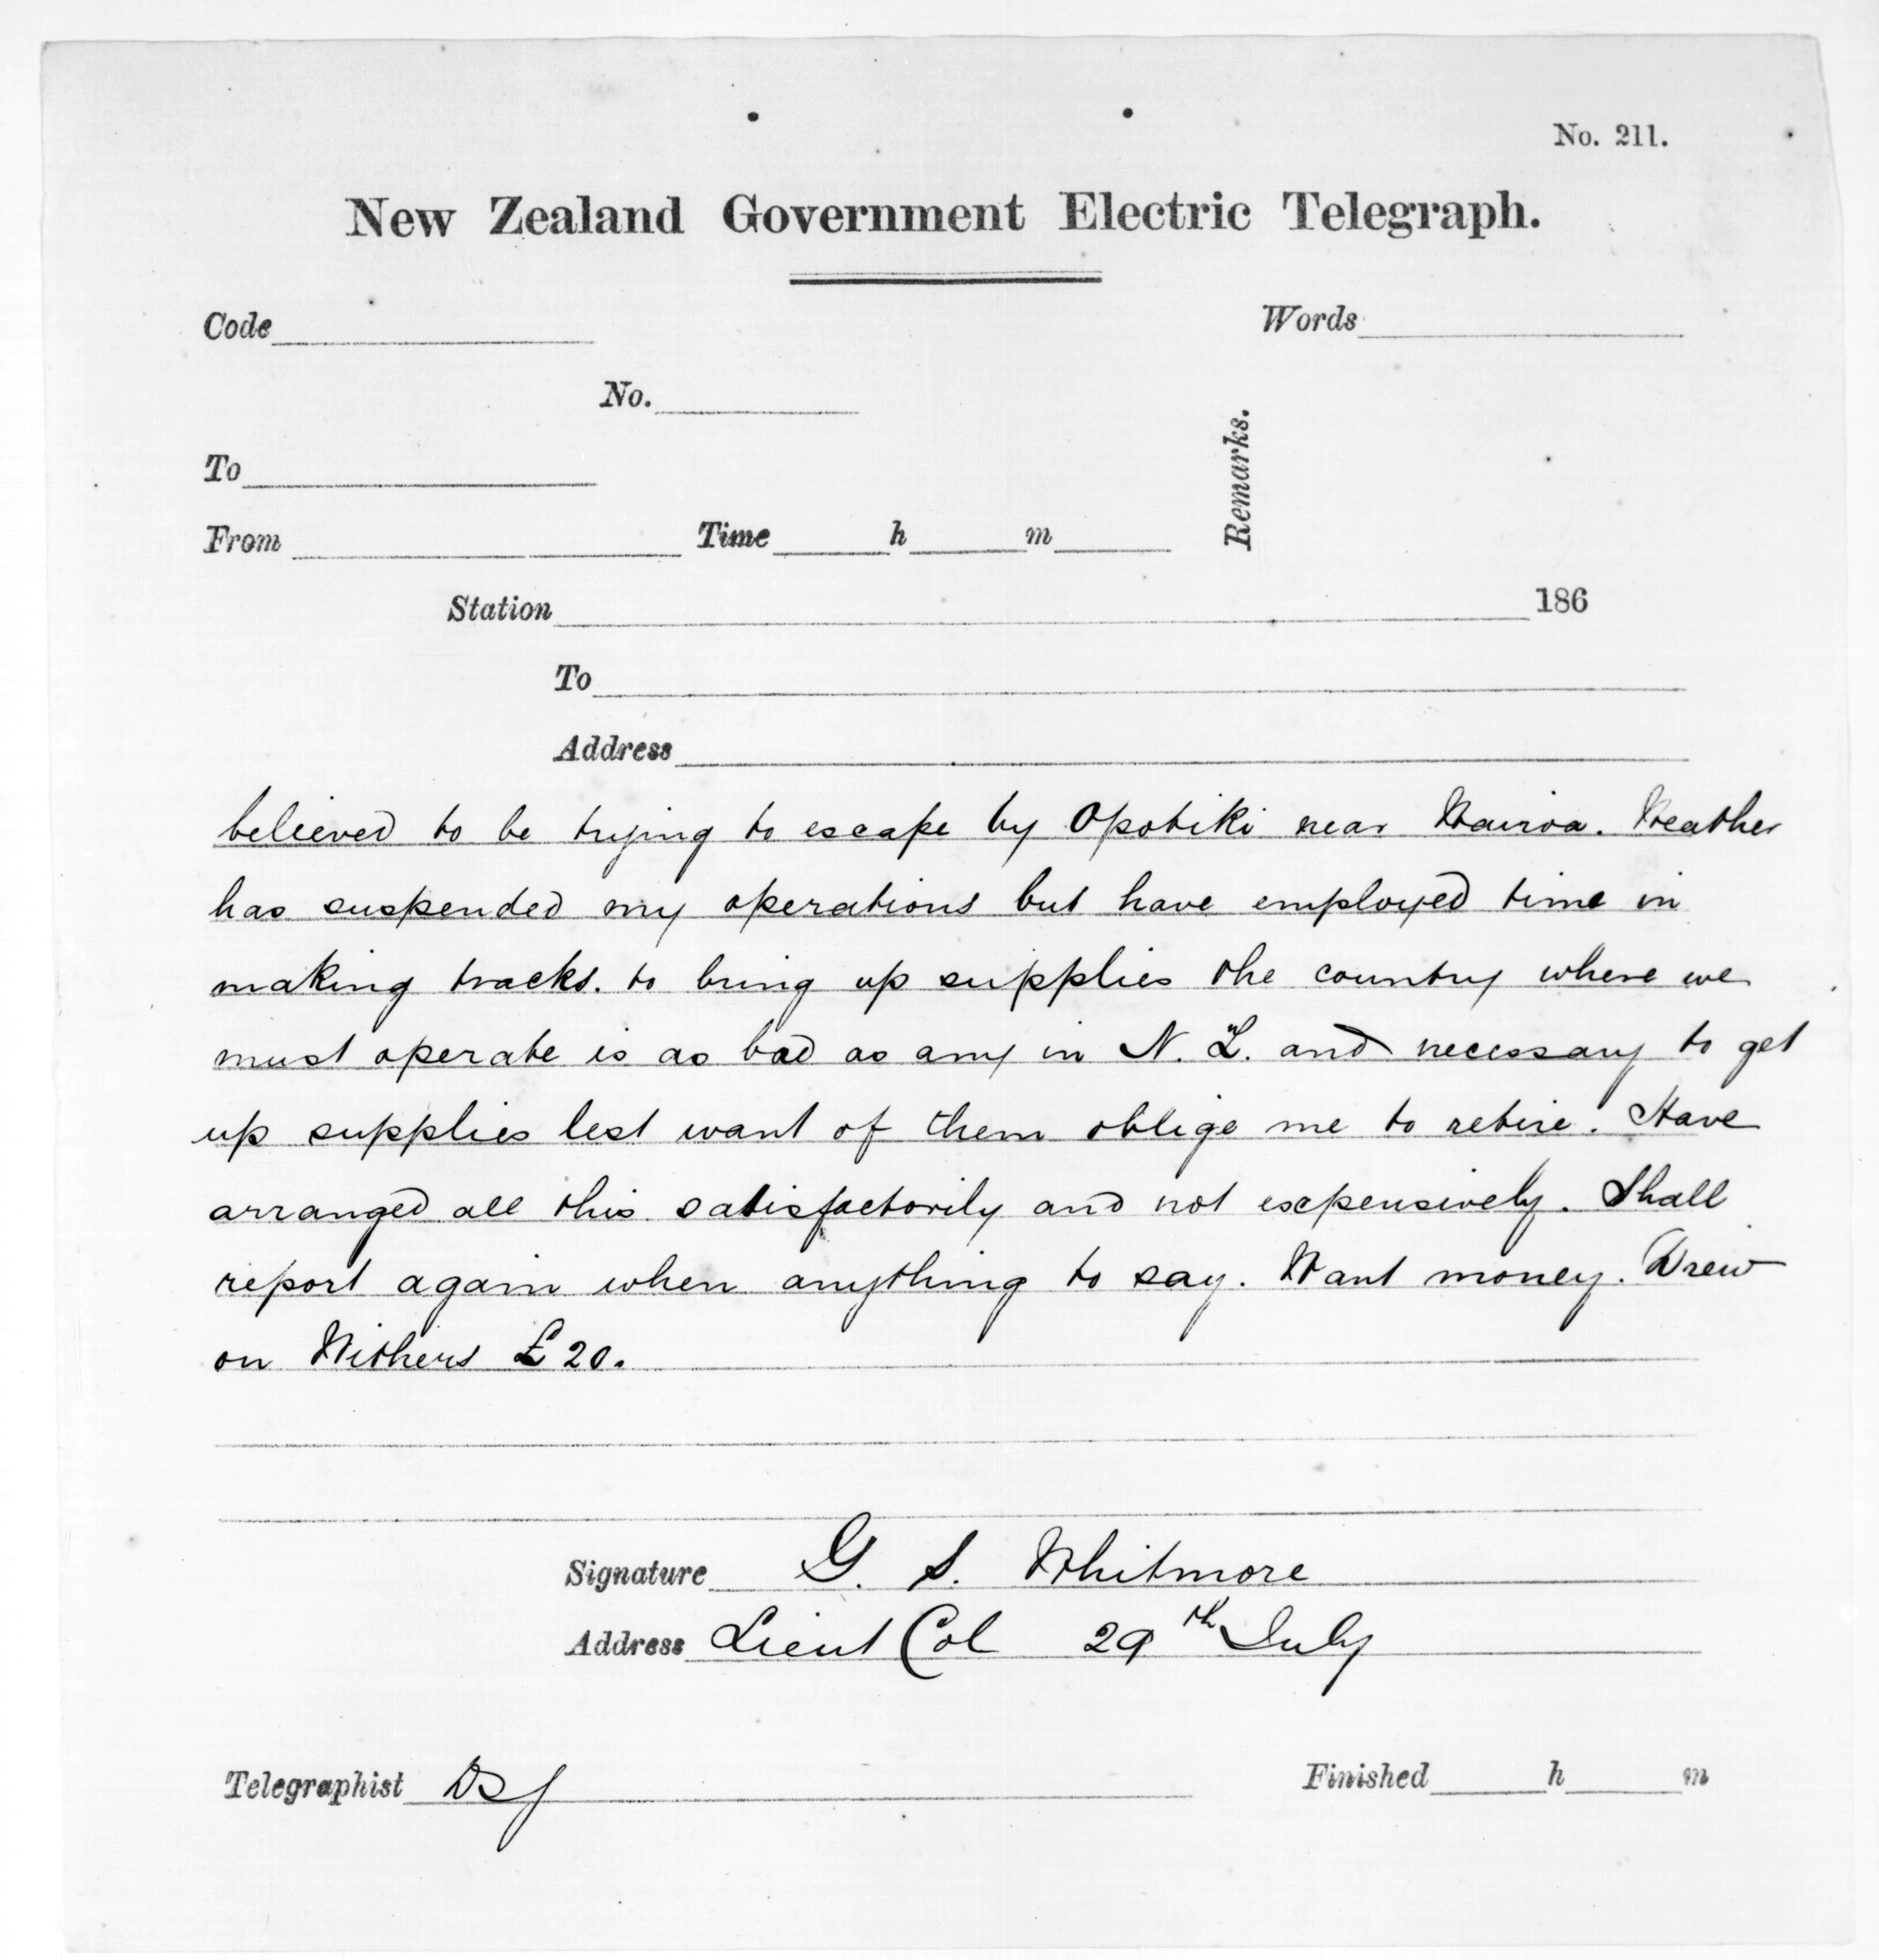 No. 211.
New Zealand Government Electric Telegraph.
Code Words
No.
To
Remarks.
From Time h m
Station 186
To
Address
believed to be trying to escape by Opotiki near Wairoa. Weather
has suspended my operations but have employed time in
making tracks. to bring up supplies the country where we
must operate is as bad as any in N. Z. and necessary to get
up supplies lest want of them oblige me to retire. Have
arranged all this satisfactorily and not expensively. Shall
report again when anything to say. Want money. Drew
on Withers £20.
Signature G. S. Whitmore
Address Lieut Col 29th July
Telegraphist
Finished h m